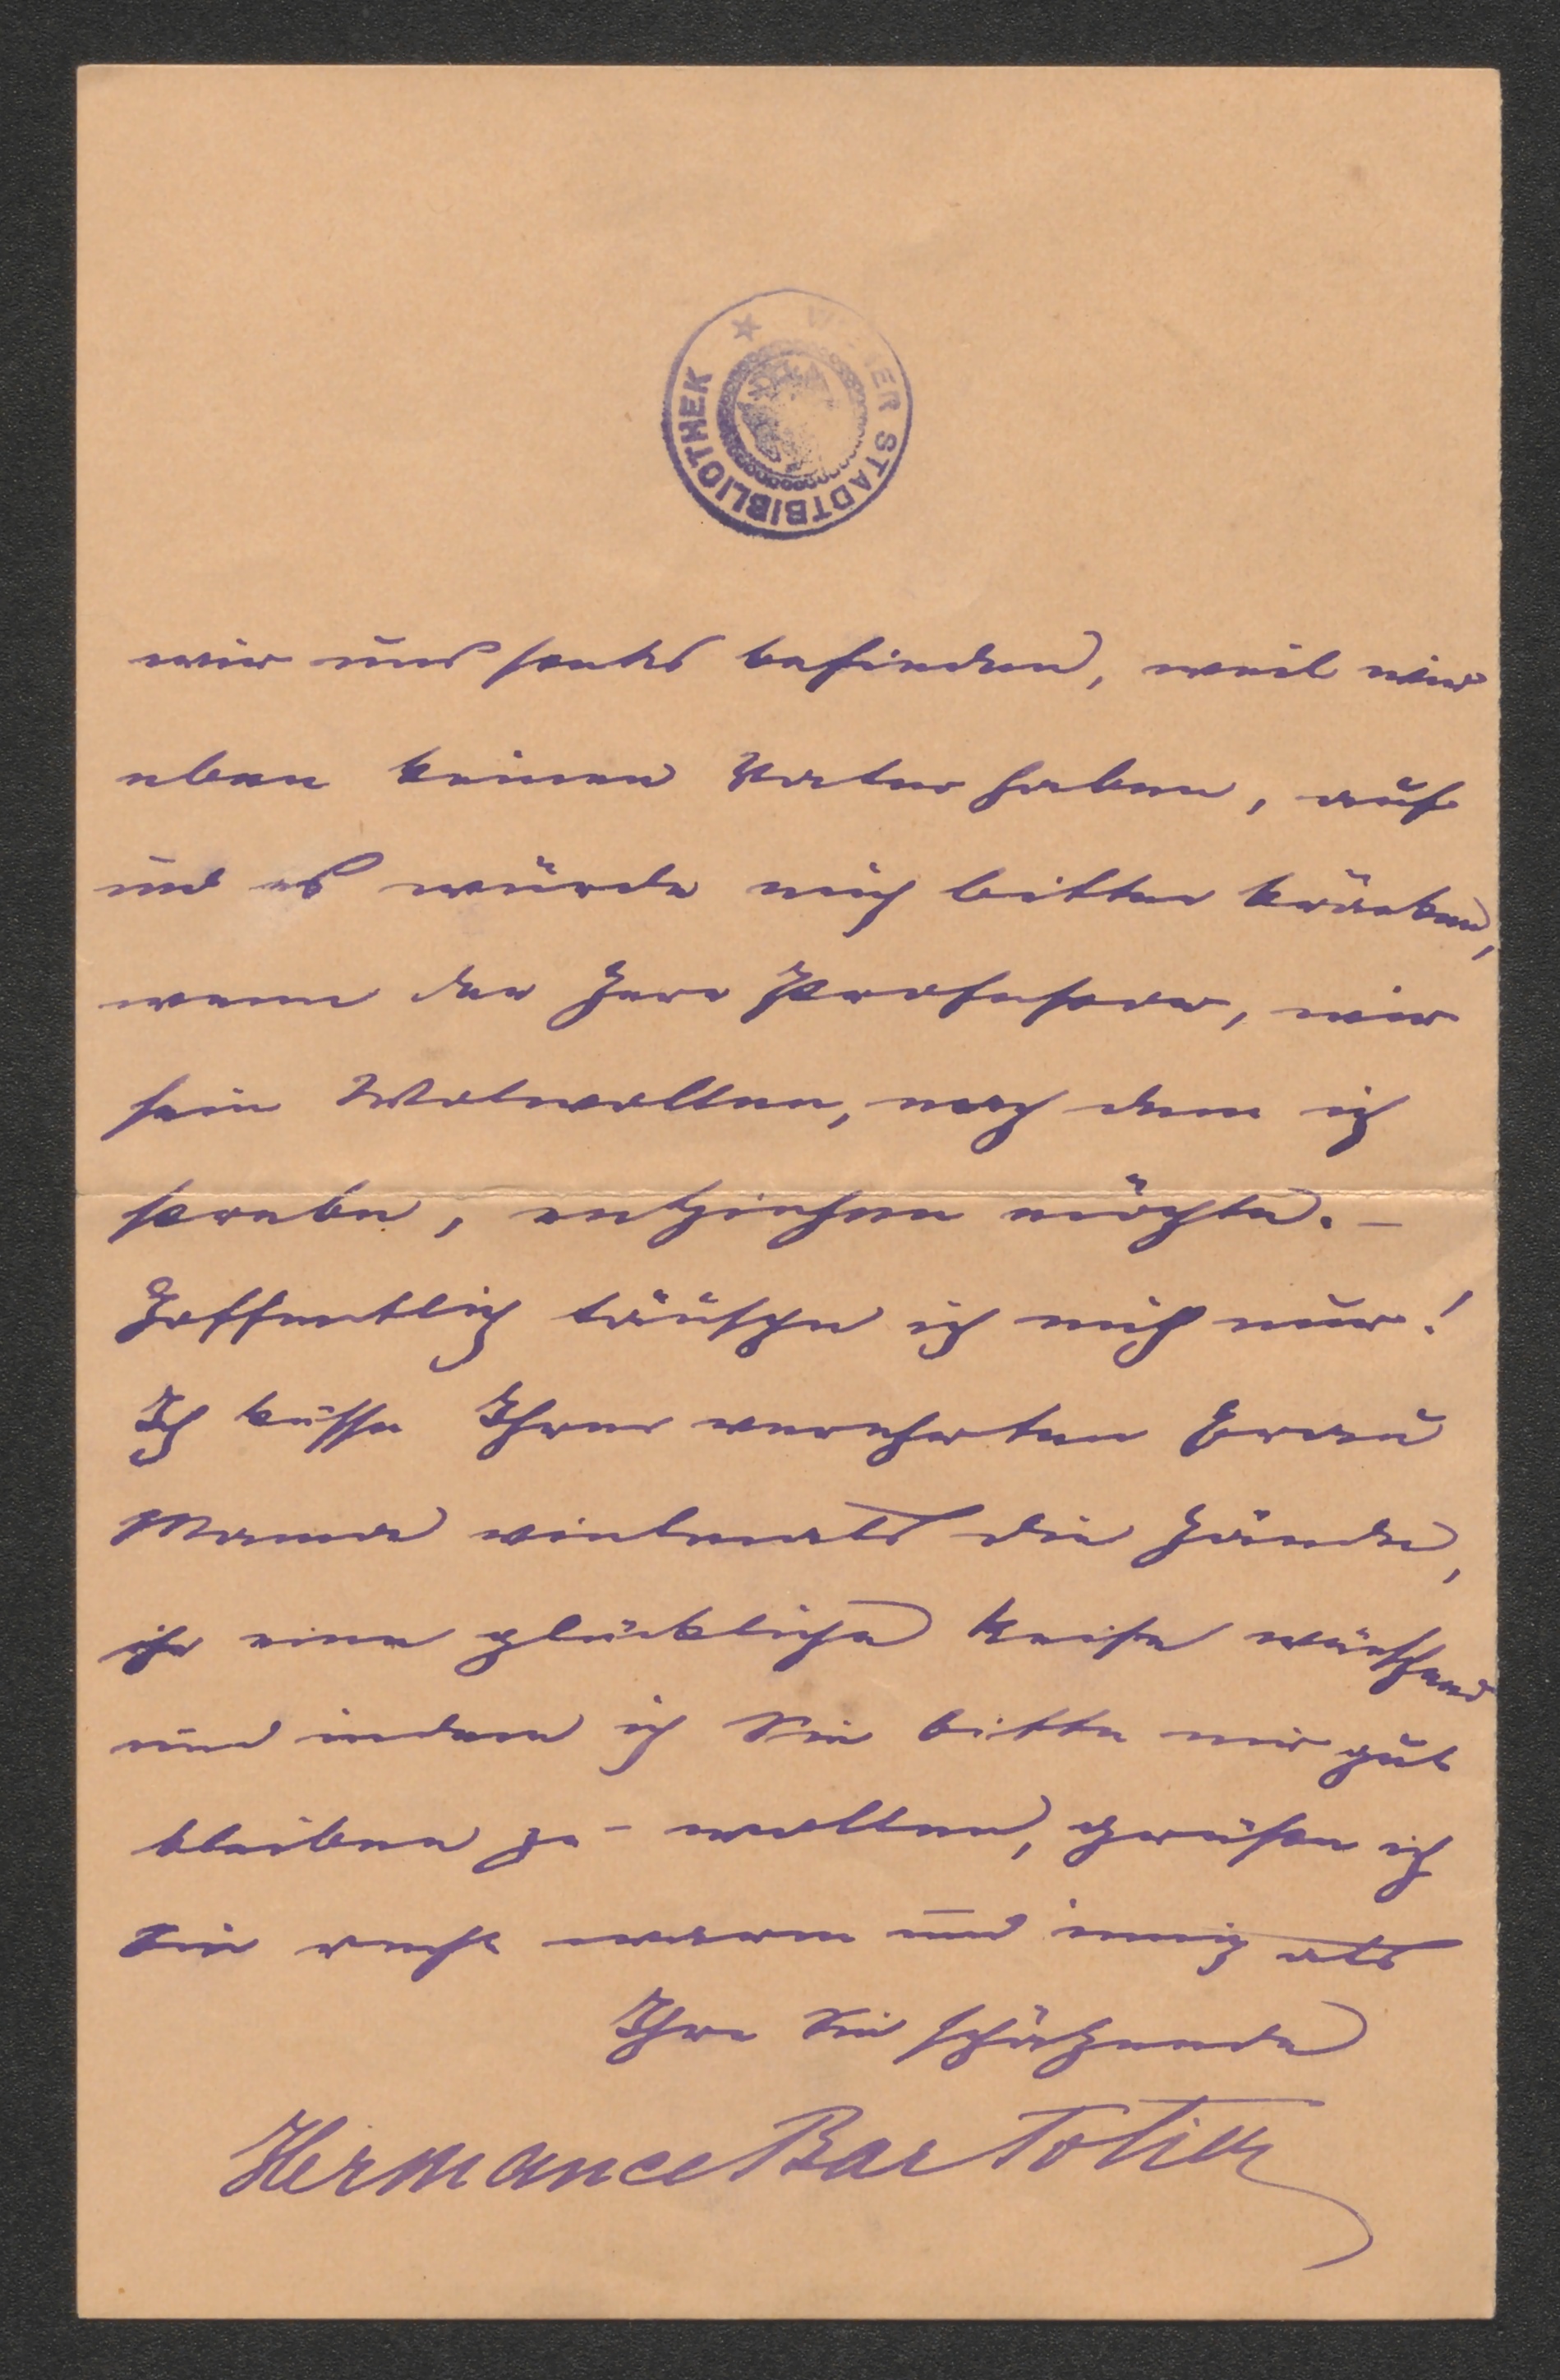 WIENER STADTBIBLIOTHEK
wir uns heute befinden, weil wir
eben keinen Vater haben, auf
und es würde mich bitter kränken,
wenn der Herr Professor, mir
sein Wolwollen, nach dem ich
strebe, entziehen möchte. –
Hoffentlich täusche ich mich nur!
Ich küsse Ihrer verehrten Frau
Mama vielmals die Hände,
ihr eine glückliche Reise wünschend
und indem ich Sie bitte mir gut
bleiben zu wollen, grüße ich
Sie recht warm und innig als
Ihre Sie schätzende
Hermance